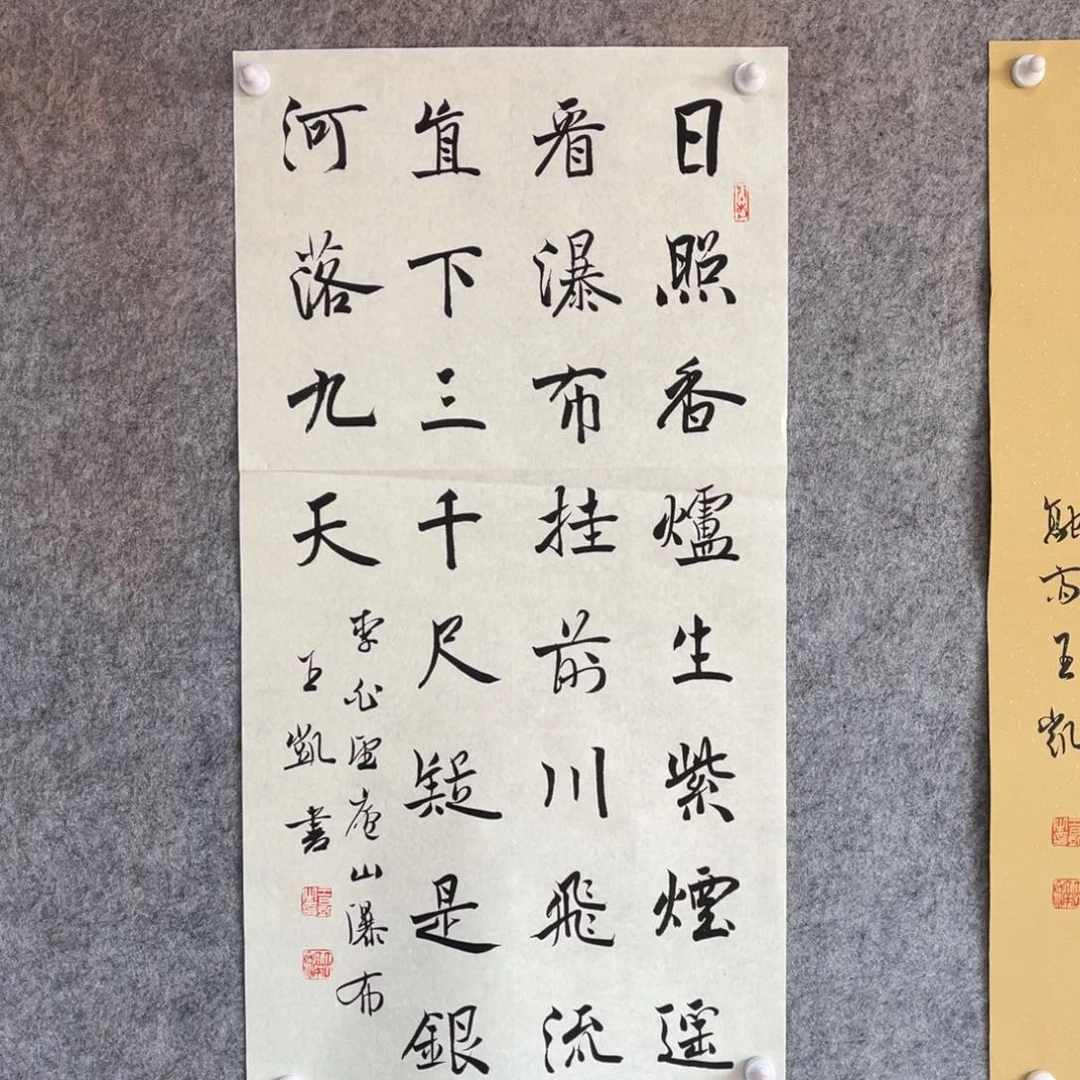 日照香爐生紫煙遥
看瀑布挂前川飛流
直下三千尺疑是銀
河落九天
李白望廬山瀑布
王凱書
王凱